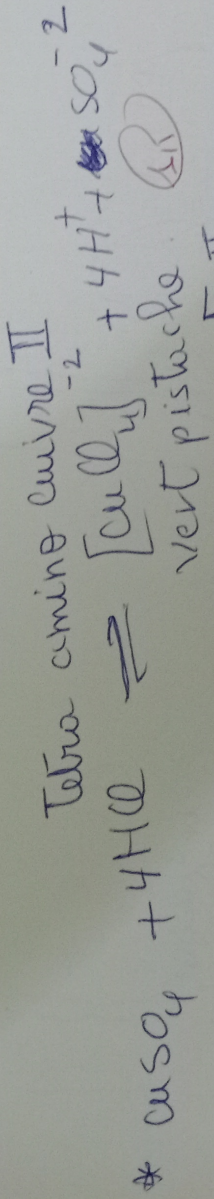 Tetra amino cuivre II
* cuSO₄ + 4HCl ⇌ [CuCl₄]⁻² + 4H⁺ + SO₄⁻²
vert pistache.